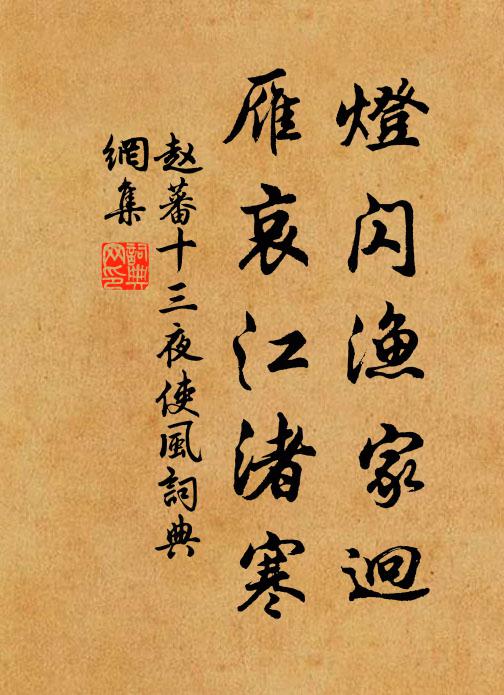 燈闪漁家迥
雁哀江渚寒
赵蕃十三夜使風詞典
網集
詞典网印